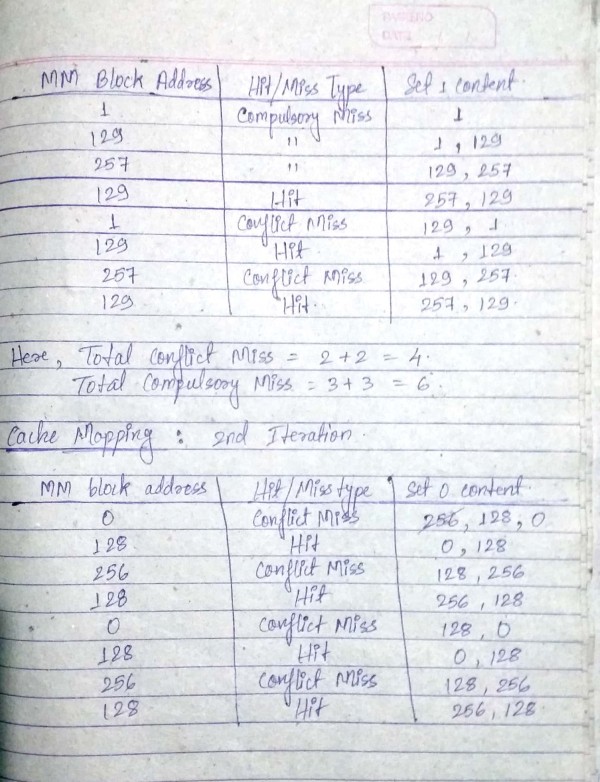 MM Block Address Hit/Miss Type Set 1 content.
1 Compulsory Miss 1
129 " 1, 129
257 " 129, 257
129 Hit 257, 129
1 Conflict Miss 129, 1
129 Hit. 1, 129
257 Conflict Miss 129, 257.
129 Hit. 257, 129.
Here, Total Conflict Miss = 2+2 = 4.
Total Compulsory Miss = 3+3 = 6.
Cache Mapping : 2nd Iteration.
MM block address Hit/Miss type Set 0 content.
0 Conflict Miss 256, 128, 0
128 Hit 0, 128
256 Conflict Miss 128, 256
128 Hit 256, 128
0 Conflict Miss 128, 0
128 Hit 0, 128
256 Conflict Miss 128, 256
128 Hit 256, 128.